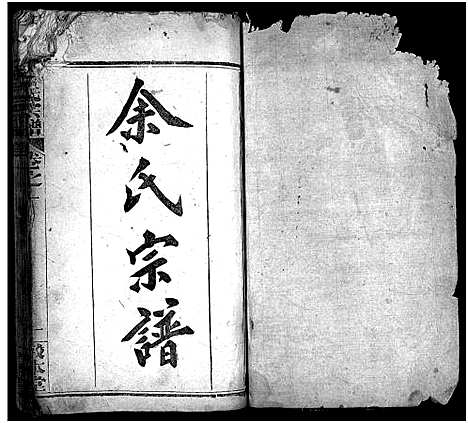 余氏宗譜
氏宗譜
卷之